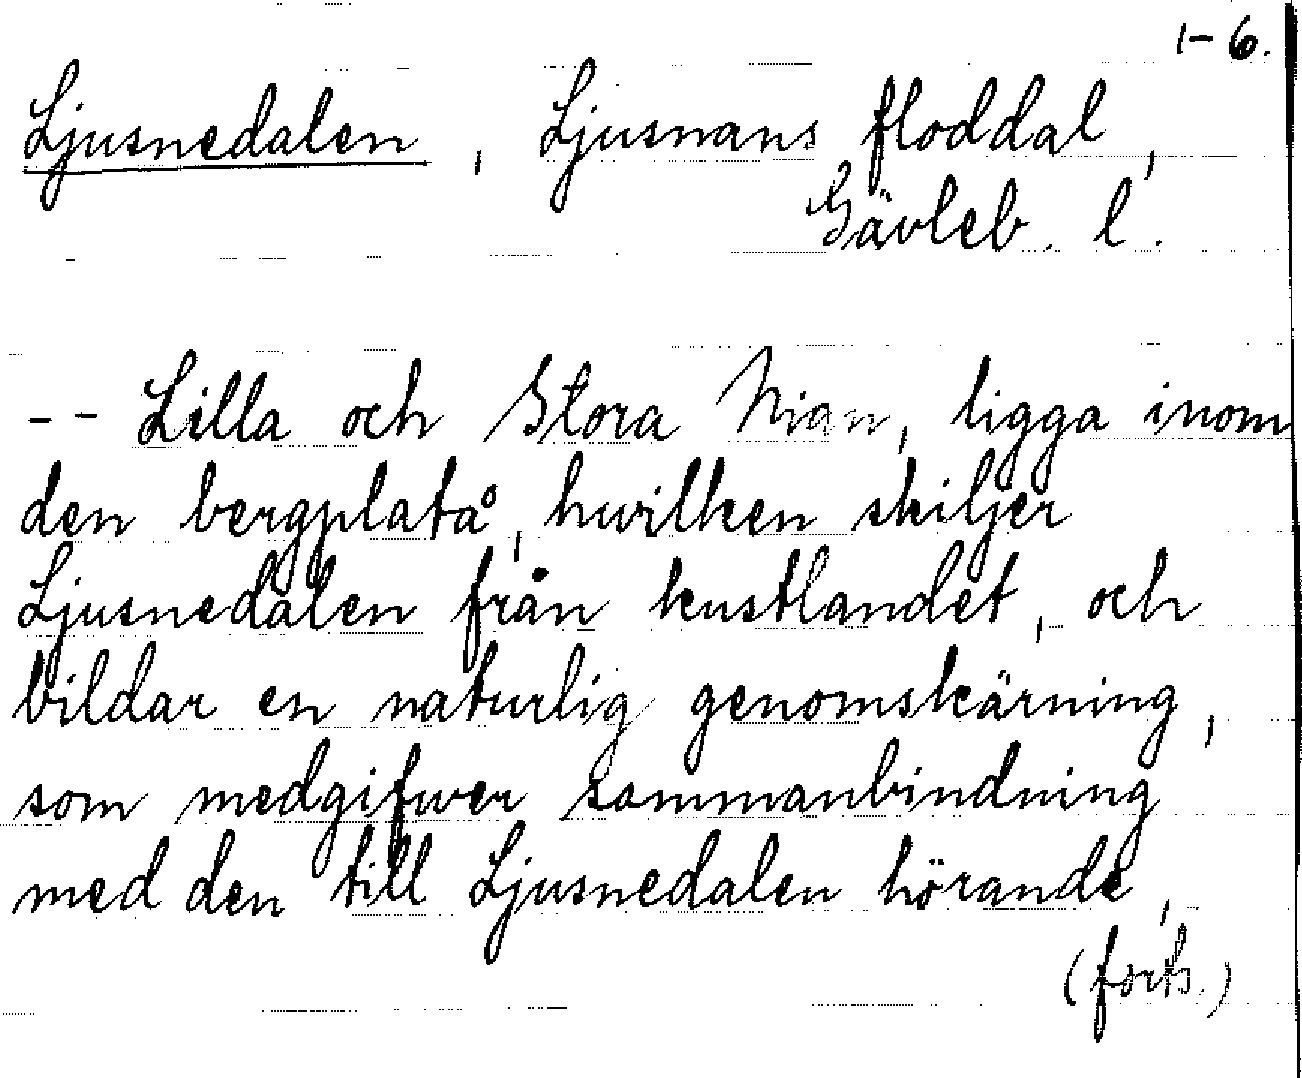 1-6.
Ljusnedalen, Ljusnans floddal,
Gävleb. l.
-- Lilla och Stora Nian, ligga inom
den bergplatå, hwilken skiljer
Ljusnedalen från kustlandet, och
bildar en naturlig genomskärning,
som medgifwer sammanbindning
med den till Ljusnedalen hörande,
(forts.)